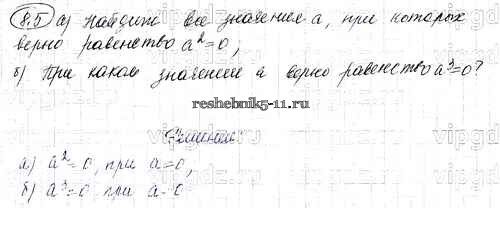 8.5 а) Найдите все значения а, при которых
верно равенство a²=0;
б) При каком значении а верно равенство a³=0?
reshebnik5-11.ru
Решение:
а) a²=0, при a=0,
б) a³=0 при a=0